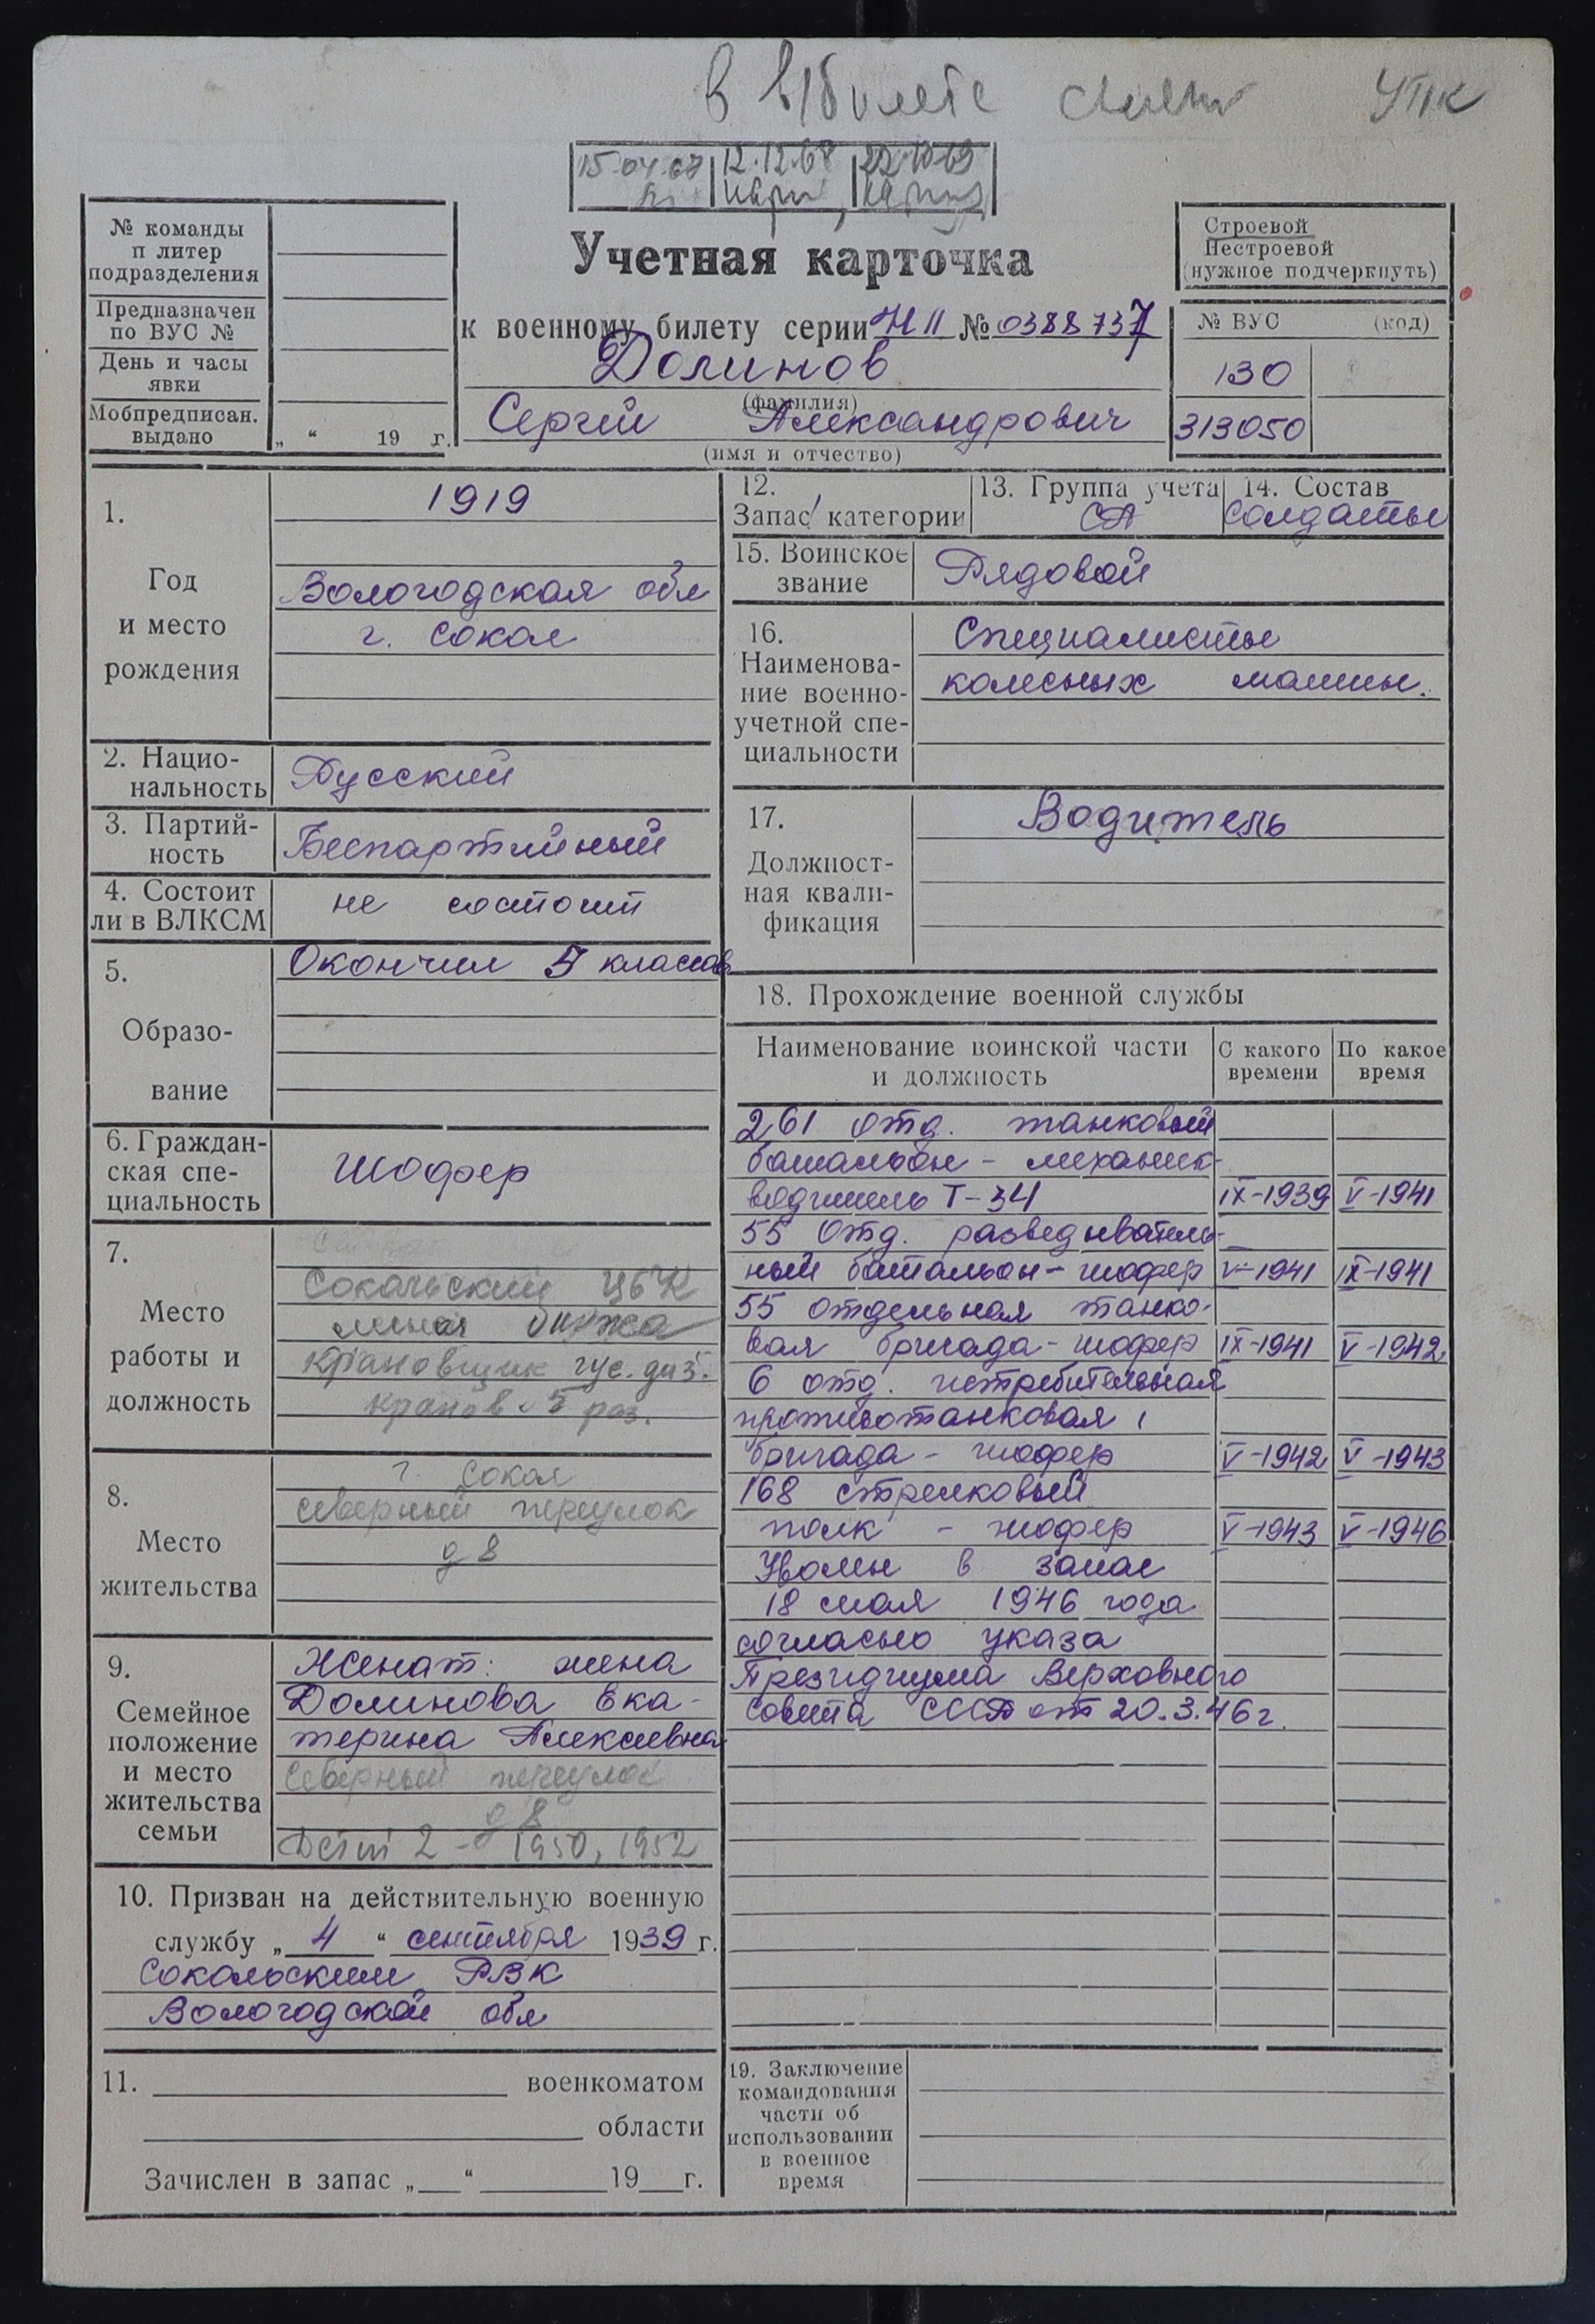 в в/билете УПК
15.04.67 12.12.68 22.10.69
№ команды
п литер
подразделения
Предназначен
по ВУС №
День и часы
явки
Мобпредписан.
выдано
„ “ 19 г.
Учетная карточка
к военному билету серии НП № 0388737
Долинов
(фамилия)
Сергей Александрович
(имя и отчество)
Строевой
Нестроевой
(нужное подчеркнуть)
№ ВУС (код)
130
313050
1.
Год
и место
рождения
1919
Вологодская обл
г. Сокол
2. Нацио-
нальность
Русский
3. Партий-
ность
Беспартийный
4. Состоит
ли в ВЛКСМ
не состоит
5.
Образо-
вание
Окончил 5 классов
6. Граждан-
ская спе-
циальность
Шофер
7.
Место
работы и
должность
Сокольский ЦБК
лесная биржа
крановщик гус. диз.
кранов 5 раз.
8.
Место
жительства
г. Сокол
Северный переулок
д 8
9.
Семейное
положение
и место
жительства
семьи
Женат: жена
Долинова Ека-
терина Алексеевна
Северный переулок
д 8
Дети 2 - 1950, 1952
10. Призван на действительную военную
службу „ 4 “ сентября 1939 г.
Сокольским РВК
Вологодской обл
11. военкоматом
области
Зачислен в запас „ “ 19 г.
12.
Запас 1 категории
13. Группа учета
СА
14. Состав
солдаты
15. Воинское
звание
Рядовой
16.
Наименова-
ние военно-
учетной спе-
циальности
Специалисты
колесных машин.
17.
Должност-
ная квали-
фикация
Водитель
18. Прохождение военной службы
Наименование воинской части
и должность
С какого
времени
По какое
время
261 отд. танковый
батальон - механик-
водитель Т-34 IX-1939 V-1941
55 Отд. разведыватель-
ный батальон - шофер V-1941 IX-1941
55 отдельная танко-
вая бригада - шофер IX-1941 V-1942
6 отд. истребительная
противотанковая
бригада - шофер V-1942 V-1943
168 стрелковый
полк - шофер V-1943 V-1946
Уволен в запас
18 мая 1946 года
согласно указа
Президиума Верховного
Совета СССР от 20.3.46 г.
19. Заключение
командования
части об
использовании
в военное
время